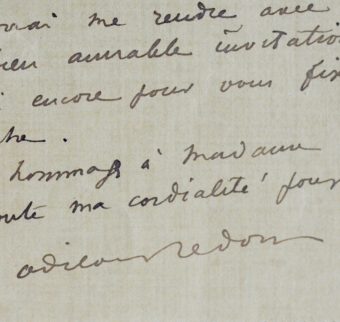 rrai me rendre avec
ien aimable invitation
i encore pour vous fix
che.
hommage à Madame
oute ma cordialité pour
odilon redon